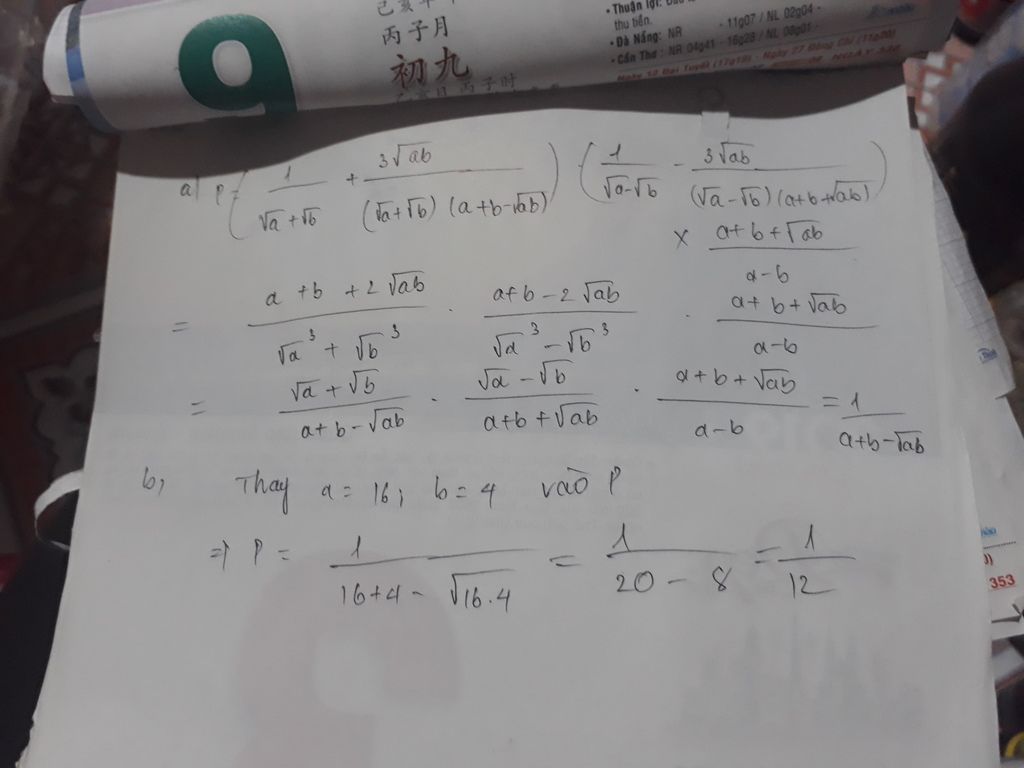 己亥年
丙子月
初九
9
• Thuận lợi:
thu tiền.
• Đà Nẵng: NR - 11g07 / NL 02g04 -
• Cần Thơ: NR 04g41 - 16g28 / NL 08g01 -
Ngày 12 Đại Tuyết (17g18) - Ngày 27 Đông Chí (11g08)
a) P = ( 1/(√a + √b) + 3√ab/((√a+√b) (a+b-√ab)) ) ( 1/(√a-√b) - 3√ab/((√a-√b) (a+b+√ab)) )
× (a+b+√ab)/(a-b)
= (a+b+2√ab)/(√a³ + √b³) . (a+b-2√ab)/(√a³ - √b³) . (a+b+√ab)/(a-b)
= (√a+√b)/(a+b-√ab) . (√a-√b)/(a+b+√ab) . (a+b+√ab)/(a-b) = 1/(a+b-√ab)
b, Thay a = 16; b = 4 vào P
=> P = 1/(16+4-√16.4) = 1/(20-8) = 1/12
353